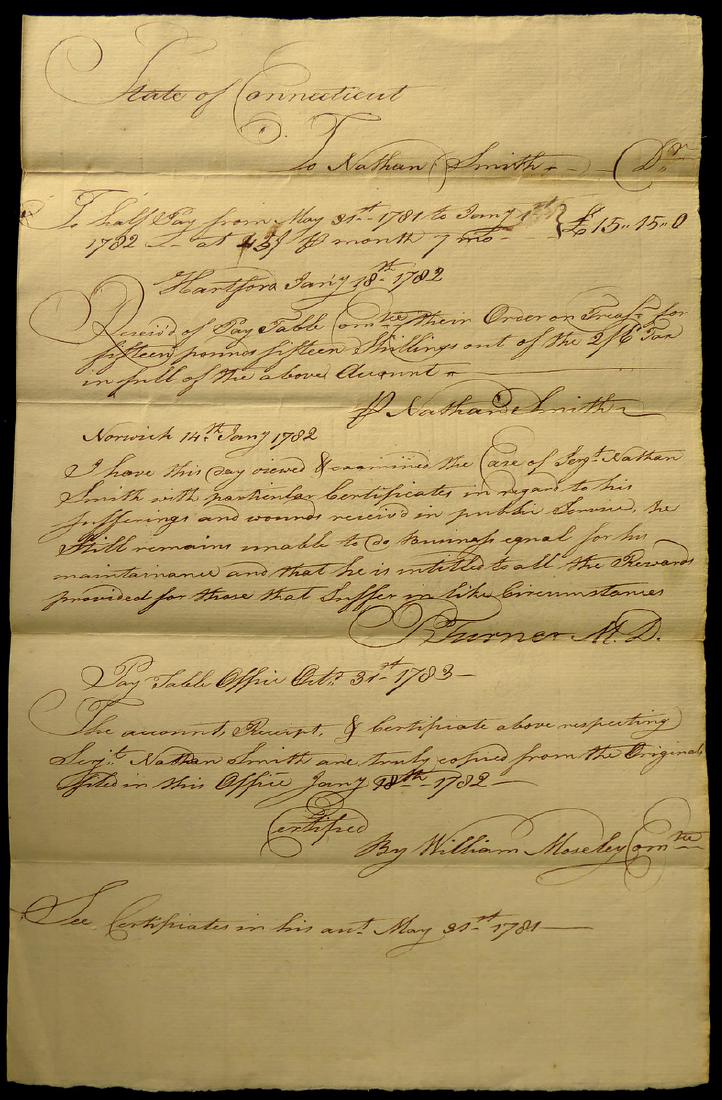 State of Connecticut
To Nathan Smith Dr
To half Pay from May 31st 1781 to Jany 1st
1782 at 45/ ⅌ month 7 mo } £15,, 15,, 0
Hartford Jan'y 18th 1782
Receiv'd of Pay Table Comtee their Order on Treasr for
fifteen pounds fifteen Shillings out of the 2/6 Tax
in full of the above Account
⅌ Nathan Smith
Norwich 14th Jany 1782
I have this Day viewed & examined the Case of Serjt Nathan
Smith with particular Certificates in regard to his
sufferings and wounds receiv'd in public Service, he
Still remains unable to do Business equal for his
maintainance and that he is intitled to all the Rewards
provided for those that Suffer in like Circumstances
P Turner M.D.
Pay Table Office Octr 31st 1783
The account, Receipt, & Certificate above respecting
Serjt Nathan Smith are truly copied from the Original
filed in this Office Jany 18th 1782
Certified
By William Moseley Comtee
See Certificates in his aut May 31st 1781